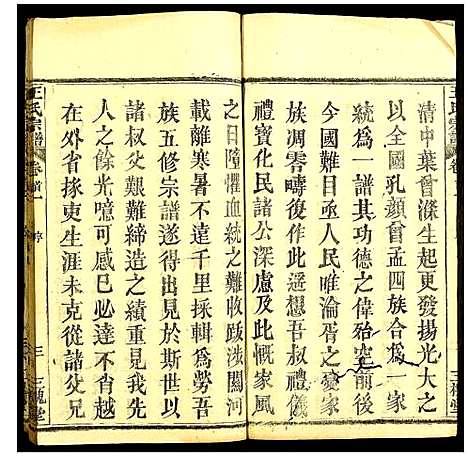 清中葉曾滌生起更發揚光大之
以全國孔顏曾孟四族合為一家
統為一譜其功德之偉殆空前後
今國難日亟人民唯淪胥之憂家
族凋零疇復作此遐想吾儀彰
禮寶化民諸公深慮此慨家風
之日隳懼血統之難收跋涉關河
載離寒暑不遠千里採輯為勞吾
族五修宗譜遂得出見於斯世以
諸叔父艱難締造之績重見我先
人之餘光噫可感巳必不肖越
在外省掾吏生涯未克從諸父兄
王氏宗譜 卷首一 序 三 三槐堂
王氏宗譜 卷首一 三槐堂